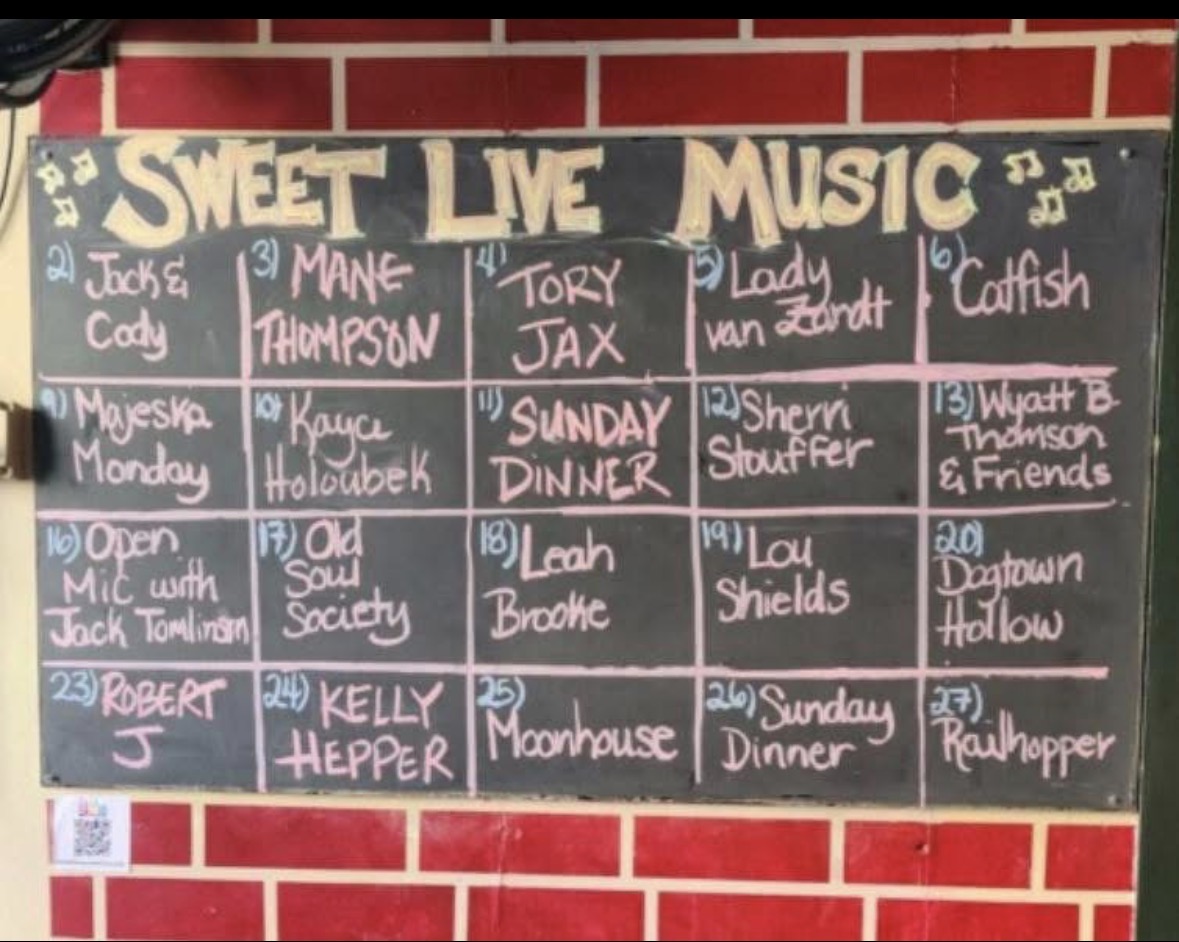 SWEET LIVE MUSIC
2) Jack &
Cody
3) MANE
THOMPSON
4) TORY
JAX
5) Lady
van Zandt
6) Catfish
9) Majeska
Monday
10) Kayce
Holoubek
11) SUNDAY
DINNER
12) Sherri
Stouffer
13) Wyatt B.
Thomson
& Friends
16) Open
Mic with
Jack Tomlinson
17) Old
Soul
Society
18) Leah
Brooke
19) Lou
Shields
20)
Dogtown
Hollow
23) ROBERT
J
24) KELLY
HEPPER
25)
Moonhouse
26) Sunday
Dinner
27)
Railhopper